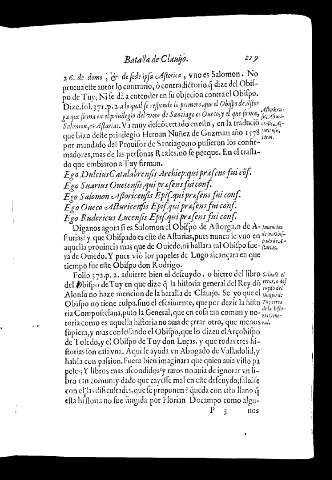 Batalla de Clauijo. 229
26. de domo, & de sede ipsa Astorica, vno es Salomon. No
prueua este autor lo contrario, ò contradictorio q̃ dize del Obis-
po de Tuy, Ni se dà a entender en su objecion contra el Obispo.
Dize, fol. 371. p. 2. a lo qual se responde lo primero, que el Obispo de Astor
ga que firma en el priuilegio del voto de Santiago es Oueto, y el que firma,
Salomon, es Asturias. Va muy desalumbrado en ello, en la traduciõ
que hizo deste priuilegio Hernan Nuñez de Guzman año 1578
por mandado del Prouisor de Santiago, no pusieron los confir-
madores, mas de las personas Reales, no se porque. En el trasla-
do que embiaron a Tuy firman.
Ego Dulcius Catalabrensis Archiep. qui præsens fui cõf.
Ego Suarius Ouetensis, qui præsens fui conf.
Ego Salomon Astoricensis Epis. qui præsens fui conf.
Ego Oueco Asturicensis Epis. qui præsens fui conf.
Ego Rudericus Lucensis Epis. qui præsens fui conf.
Diganos agora si es Salomon el Obispo de Astorga, o de A-
sturias? y que Obispado es este de Asturias, pues nunca le vuo en
aquella prouincia mas que de Ouiedo, ni hallara tal Obispo fue-
ra de Ouiedo. Y pues viò los papeles de Lugo alcançara en que
tiempo fue este Obispo don Rodrigo.
Folio 372. p. 2. aduierte bien el descuydo, o hierro del libro
del Obispo de Tuy en que dize q̃ la historia general del Rey dõ
Alonso no haze mencion de la batalla de Clauijo. Se yo que el
Obispo no tiene culpa, sino el escriuiente, que por dezir la histo
ria Compostelana, puso la General, que en cosa tan comun y no-
toria como es aquella historia no auia de errar otro, que menos
supiera, y mas confessando el Obispo, que lo dizen el Arçobispo
de Toledo, y el Obispo de Tuy don Lucas, y que todas tres his-
torias son casi vna. Aqui le ayuda vn Abogado de Valladolid, y
habla con passion. Fuera bien imaginara que quien auia visto pa
peles, Y libros mas escondidos y raros no auia de ignorar vn li-
bro tan comun y dado que cayesse mal en este descuydo,
con el las dificultades, que se proponen? queda con esto llano q̃
esta historia no fue fingida por Florian Docampo como algu-
P 3 nos